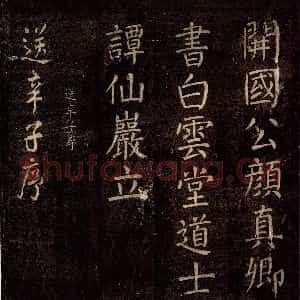 開國公顏真卿
書白雲堂道士
譚仙巖立
送辛子序